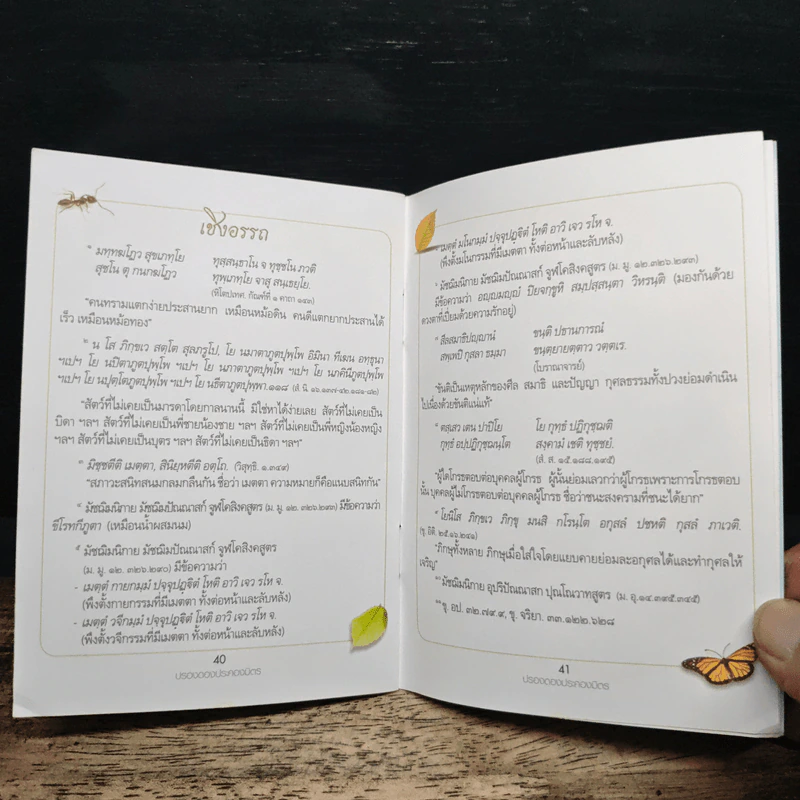 เชิงอรรถ
๑ มทฺทฆโฏว สุขเภทฺโย ทุสฺสนฺธาโน จ ทุชฺชโน ภวติ
สุชโน ตุ กนกฆโฏว ทุพฺเภทฺโย จาสุ สนฺเธยฺโย.
(หิโตปเทศ. กัณฑ์ที่ ๑ คาถา ๑๔๓)
"คนทรามแตกง่ายประสานยาก เหมือนหม้อดิน คนดีแตกยากประสานได้
เร็ว เหมือนหม้อทอง"
๒ น โส ภิกฺขเว สตฺโต สุลภรูโป, โย นมาตาภูตปุพฺโพ อิมินา ทีเฆน อทฺธุนา
ฯเปฯ โย นปิตาภูตปุพฺโพ ฯเปฯ โย นภาตาภูตปุพฺโพ ฯเปฯ โย นภคินีภูตปุพฺโพ
ฯเปฯ โย นปุตฺโตภูตปุพฺโพ ฯเปฯ โย นธีตาภูตปุพฺพา.๑๑๘ (สํ. นิ. ๑๖.๑๓๗-๔๒.๑๘๑-๘๒)
"สัตว์ที่ไม่เคยเป็นมารดาโดยกาลนานนี้ มิใช่หาได้ง่ายเลย สัตว์ที่ไม่เคยเป็น
บิดา ฯลฯ สัตว์ที่ไม่เคยเป็นพี่ชายน้องชาย ฯลฯ สัตว์ที่ไม่เคยเป็นพี่หญิงน้องหญิง
ฯลฯ สัตว์ที่ไม่เคยเป็นบุตร ฯลฯ สัตว์ที่ไม่เคยเป็นธิดา ฯลฯ"
๓ มิชฺชตีติ เมตฺตา, สินิยฺหตีติ อตฺโถ. (วิสุทธิ. ๑.๓๔๙)
"สภาวะสนิทสนมกลมกลืนกัน ชื่อว่า เมตตา ความหมายก็คือแนบสนิทกัน"
๔ มัชฌิมนิกาย มัชฌิมปัณณาสก์ จูฬโคสิงคสูตร (ม. มู. ๑๒.๓๒๖.๒๙๓) มีข้อความว่า
ขีโรทกีภูตา (เหมือนน้ำผสมนม)
๕ มัชฌิมนิกาย มัชฌิมปัณณาสก์ จูฬโคสิงคสูตร
(ม. มู. ๑๒. ๓๒๖.๒๙๐) มีข้อความว่า
- เมตฺตํ กายกมฺมํ ปจฺจุปฏฺฐิตํ โหติ อาวิ เจว รโห จ.
(พึงตั้งกายกรรมที่มีเมตตา ทั้งต่อหน้าและลับหลัง)
- เมตฺตํ วจีกมฺมํ ปจฺจุปฏฺฐิตํ โหติ อาวิ เจว รโห จ.
(พึงตั้งวจีกรรมที่มีเมตตา ทั้งต่อหน้าและลับหลัง)
40
ปรองดองประคองมิตร
- เมตฺตํ มโนกมฺมํ ปจฺจุปฏฺฐิตํ โหติ อาวิ เจว รโห จ.
(พึงตั้งมโนกรรมที่มีเมตตา ทั้งต่อหน้าและลับหลัง)
มัชฌิมนิกาย มัชฌิมปัณณาสก์ จูฬโคสิงคสูตร (ม. มู. ๑๒.๓๒๖.๒๙๓)
มีข้อความว่า อญฺญมญฺญํ ปิยจกฺขูหิ สมฺปสฺสนฺตา วิหรนฺติ (มองกันด้วย
ดวงตาที่เปี่ยมด้วยความรักอยู่)
สีลสมาธิปญฺญานํ ขนฺติ ปธานการณํ
สพฺเพปิ กุสลา ธมฺมา ขนฺตฺยายตฺตาว วตฺตเร.
(โบราณาจารย์)
"ขันติเป็นเหตุหลักของศีล สมาธิ และปัญญา กุศลธรรมทั้งปวงย่อมดำเนิน
ไปเนื่องด้วยขันติแน่แท้"
ตสฺเสว เตน ปาปิโย โย กุทฺธํ ปฏิกุชฺฌติ
กุทฺธํ อปฺปฏิกุชฺฌนฺโต สงฺคามํ เชติ ทุชฺชยํ.
(สํ. ส. ๑๕.๑๘๘.๑๙๕)
"ผู้ใดโกรธตอบต่อบุคคลผู้โกรธ ผู้นั้นย่อมเลวกว่าผู้โกรธเพราะการโกรธตอบ
นั้น บุคคลผู้ไม่โกรธตอบต่อบุคคลผู้โกรธ ชื่อว่าชนะสงครามที่ชนะได้ยาก"
โยนิโส ภิกฺขเว ภิกฺขุ มนสิ กโรนฺโต อกุสลํ ปชหติ กุสลํ ภาเวติ.
(ขุ. อิติ. ๒๕.๑๖.๒๔๑)
"ภิกษุทั้งหลาย ภิกษุเมื่อใส่ใจโดยแยบคายย่อมละอกุศลได้และทำกุศลให้
เจริญ"
๑๐ มัชฌิมนิกาย อุปริปัณณาสก ปุณโณวาทสูตร (ม. อุ.๑๔.๓๙๕.๓๔๕)
๑๑ ขุ. อป. ๓๒.๗๙.๙, ขุ. จริยา. ๓๓.๑๒๒.๖๒๘
41
ปรองดองประคองมิตร